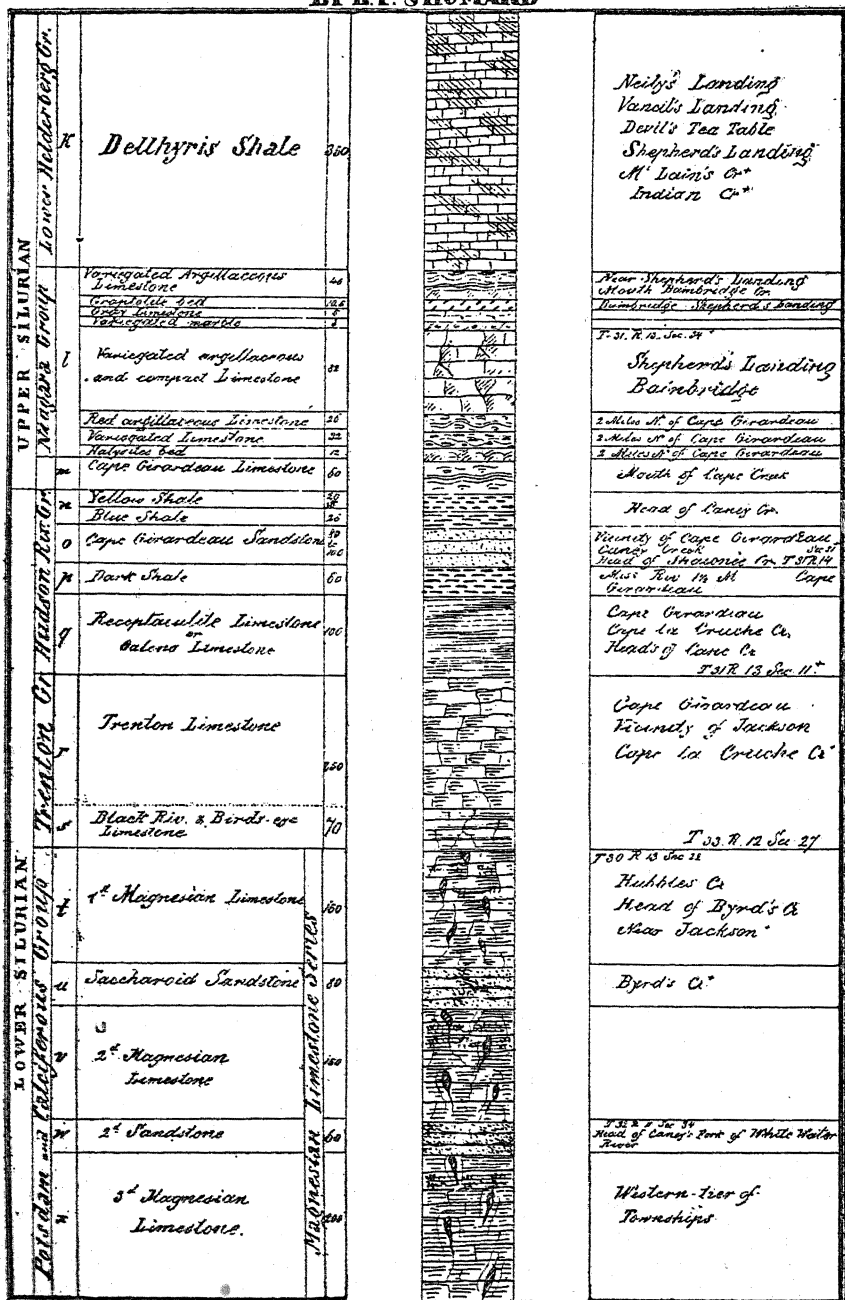 BY B.F. SHUMARD
UPPER SILURIAN
LOWER SILURIAN
Lower Helderberg Gr.
Niagara Group
Hudson Riv. Gr.
Trenton Gr.
Potsdam and Calciferous Group
Magnesian Limestone Series
K Delthyris Shale 350
Neily's Landing
Vancil's Landing
Devil's Tea Table
Shepherd's Landing
Mc Lain's Cr
Indian Cr
l
Variegated Argillaceous
Limestone
Near Shepherd's Landing
Mouth Bainbridge Cr
Graptolite bed
Bainbridge Shepherd's Landing
Grey Limestone
Variegated marble
T. 31. R. 13. Sec. 34
Variegated argillaceous
and compact Limestone
Shepherd's Landing
Bainbridge
Red argillaceous Limestone
2 Miles N. of Cape Girardeau
Variegated Limestone
2 Miles N. of Cape Girardeau
Halysites bed 12
2 Miles N. of Cape Girardeau
m Cape Girardeau Limestone 60
Mouth of Cape Creek
n Yellow Shale
Blue Shale
Head of Caney Cr.
o Cape Girardeau Sandstone
100
Vicinity of Cape Girardeau
Caney Creek
Head of Shawnee Cr. T 31 R 14
p Dark Shale 60
Miss Riv 1½ M Cape
Girardeau
q Receptaculite Limestone
or
Galena Limestone
100
Cape Girardeau
Cape la Cruche Cr.
Heads of Cane Cr
T 31 R 13 Sec. 11
r Trenton Limestone
250
Cape Girardeau
Vicinity of Jackson
Cape la Cruche Cr
s Black Riv. & Birds-eye
Limestone
70
T 33. R. 12 Sec 27
T 30 R 13 Sec 22
t 1st Magnesian Limestone 150
Hubbles Cr
Head of Byrd's Cr
Near Jackson
u Saccharoid Sandstone 80
Byrd's Cr
v 2d Magnesian
Limestone
150
w 2d Sandstone 60
Head of Caney's Fork of White Water
River
x 3d Magnesian
Limestone.
200
Western tier of
Townships